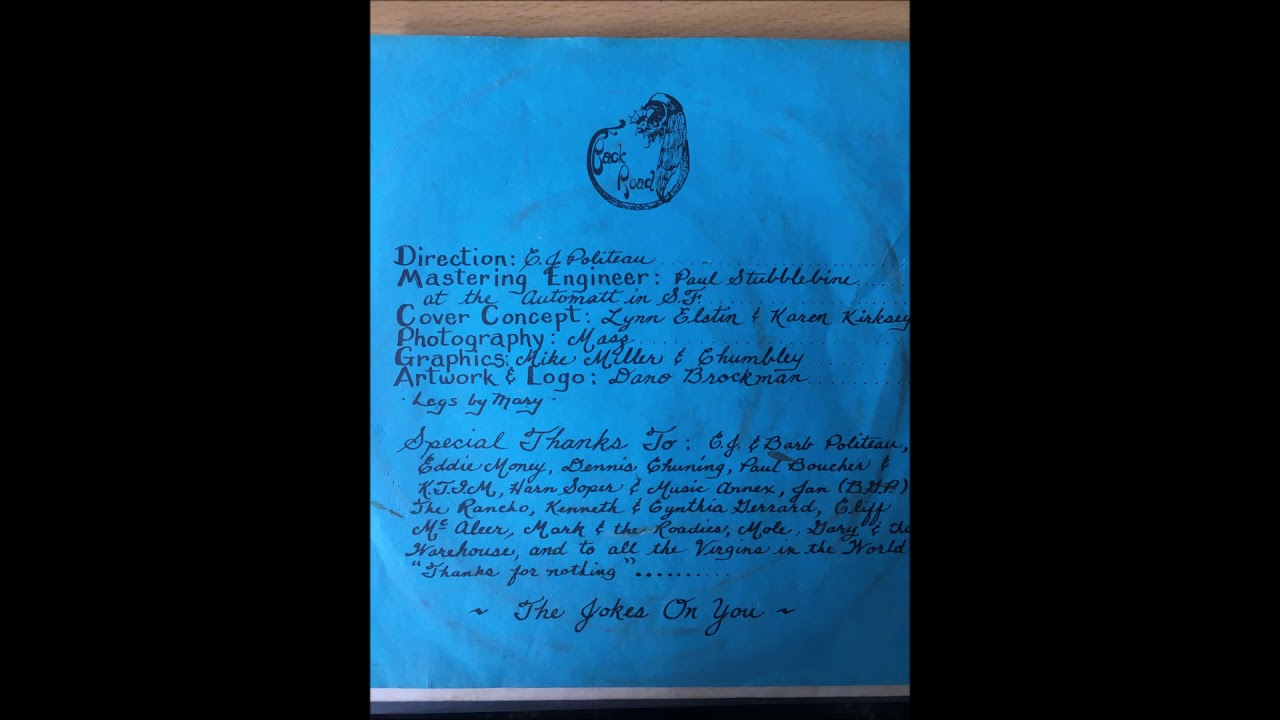 Back
Road
Direction: E.J Politeau
Mastering Engineer: Paul Stubblebine
at the Automatt in S.F.
Cover Concept: Lynn Elstin & Karen Kirksey
Photography: Masz
Graphics: Mike Miller & Chumbley
Artwork & Logo: Dano Brockman
· Legs by Mary ·
Special Thanks To: E.J. & Barb Politeau,
Eddie Money, Dennis Chuning, Paul Boucher &
K.T.I.M, Harn Soper & Music Annex, Jan (B.G.P.)
The Rancho, Kenneth & Cynthia Gerrard, Cliff
Mc Aleer, Mark & the Roadies, Mole, Gary & the
Warehouse, and to all the Virgins in the World
"Thanks for nothing"..........
~ The Jokes On You ~